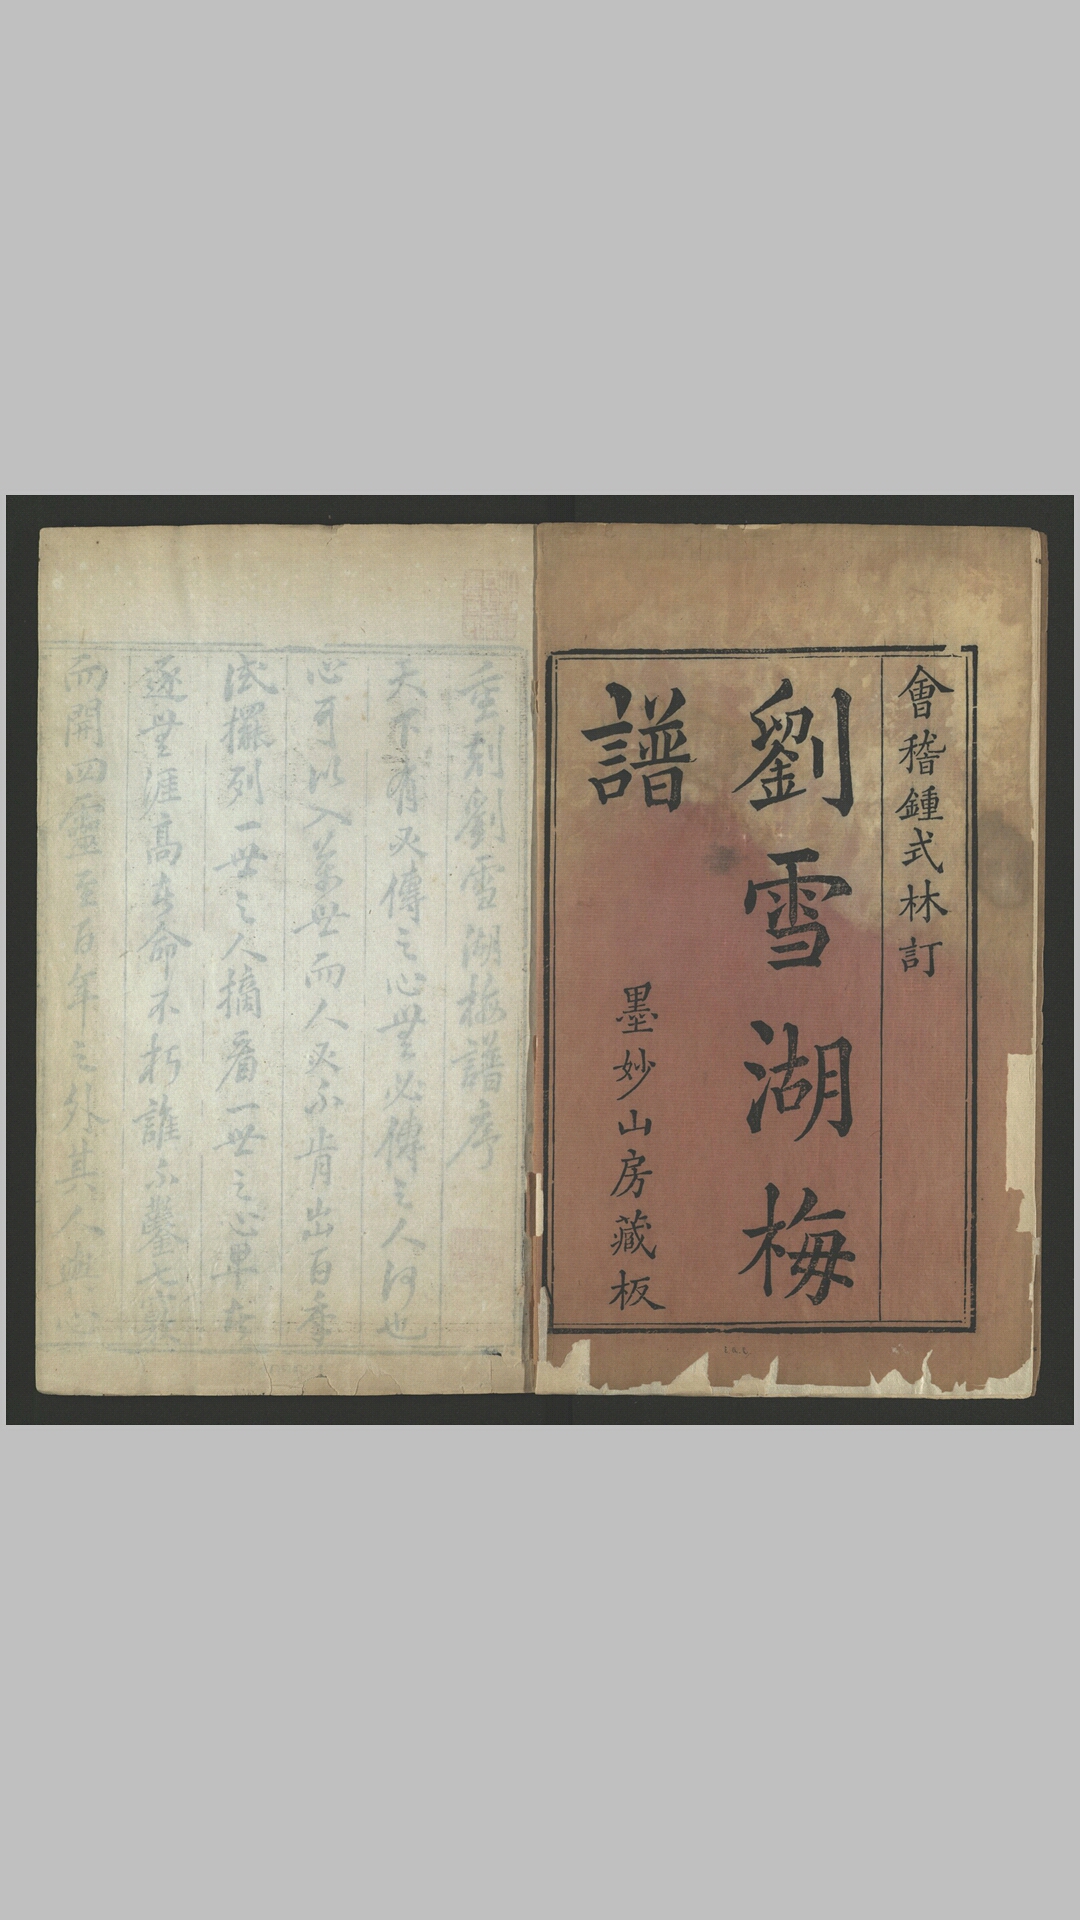 會稽鍾式林訂
劉雪湖梅
譜
墨妙山房藏板
重刻劉雪湖梅譜序
天下有必傳之心無必傳之人何也
心可以入萬世而人必不肯出百季
試擺列一世之人摘看一世之心畢
逐無涯高者命不朽誰不鑿七竅
而開四靈至百年之外其人與心